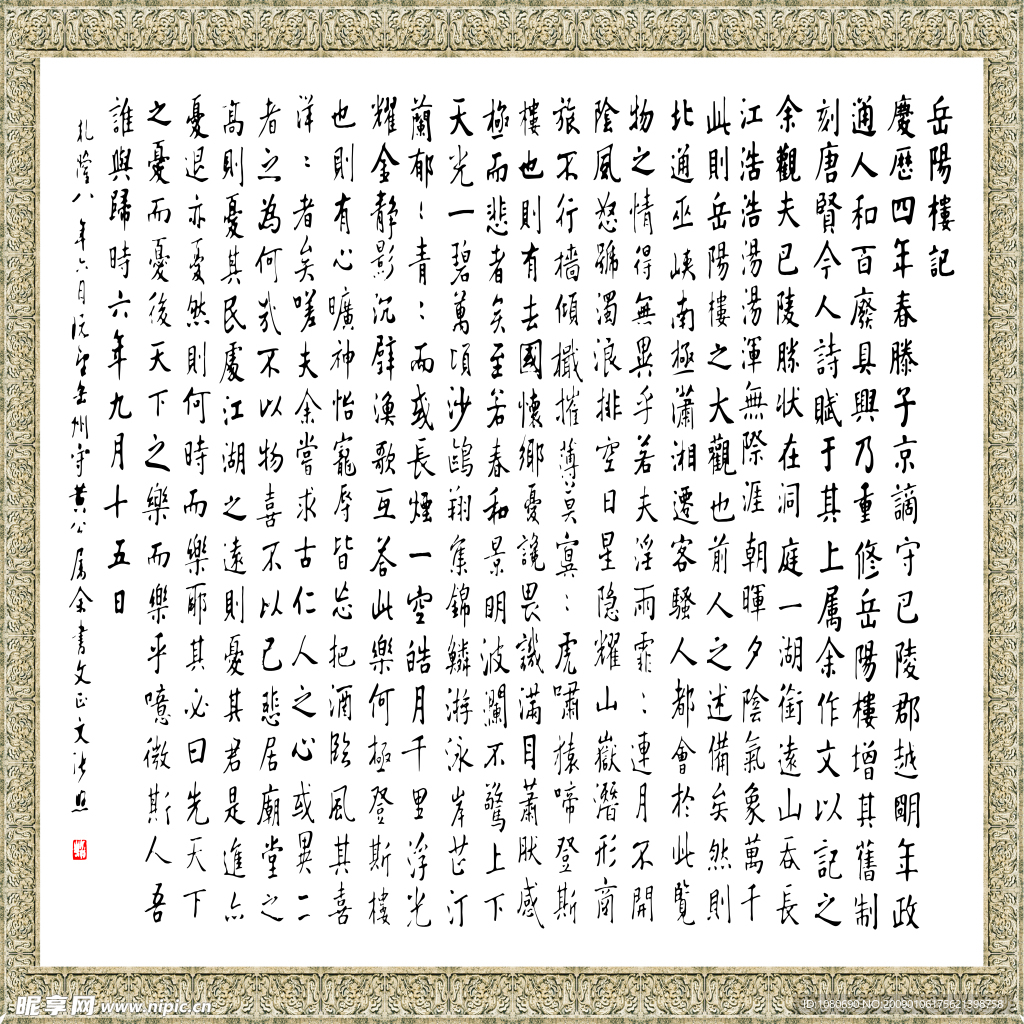 岳陽樓記
慶歷四年春滕子京謫守巴陵郡越明年政
通人和百廢具興乃重修岳陽樓增其舊制
刻唐賢今人詩賦于其上屬余作文以記之
余觀夫巴陵勝狀在洞庭一湖銜遠山吞長
江浩浩湯湯渾無際涯朝暉夕陰氣象萬千
此則岳陽樓之大觀也前人之述備矣然則
北通巫峽南極瀟湘遷客騷人都會於此覽
物之情得無異乎若夫淫雨霏：連月不開
陰風怒號濁浪排空日星隱耀山嶽潛形商
旅不行檣傾檝摧薄莫冥：虎嘯猿啼登斯
樓也則有去國懷鄉憂讒畏譏滿目蕭然感
極而悲者矣至若春和景明波瀾不驚上下
天光一碧萬頃沙鷗翔集錦鱗游泳岸芷汀
蘭郁：青：而或長煙一空皓月千里浮光
耀金靜影沉璧漁歌互答此樂何極登斯樓
也則有心曠神怡寵辱皆忘把酒臨風其喜
洋：者矣嗟夫余嘗求古仁人之心或異二
者之為何哉不以物喜不以己悲居廟堂之
高則憂其民處江湖之遠則憂其君是進亦
憂退亦憂然則何時而樂耶其必曰先天下
之憂而憂後天下之樂而樂乎噫微斯人吾
誰與歸時六年九月十五日
乾隆八年六月 岳州守黃公屬余書文正文張照
昵享网 www.nipic.cn
ID:1980690 NO:20090106175621398758